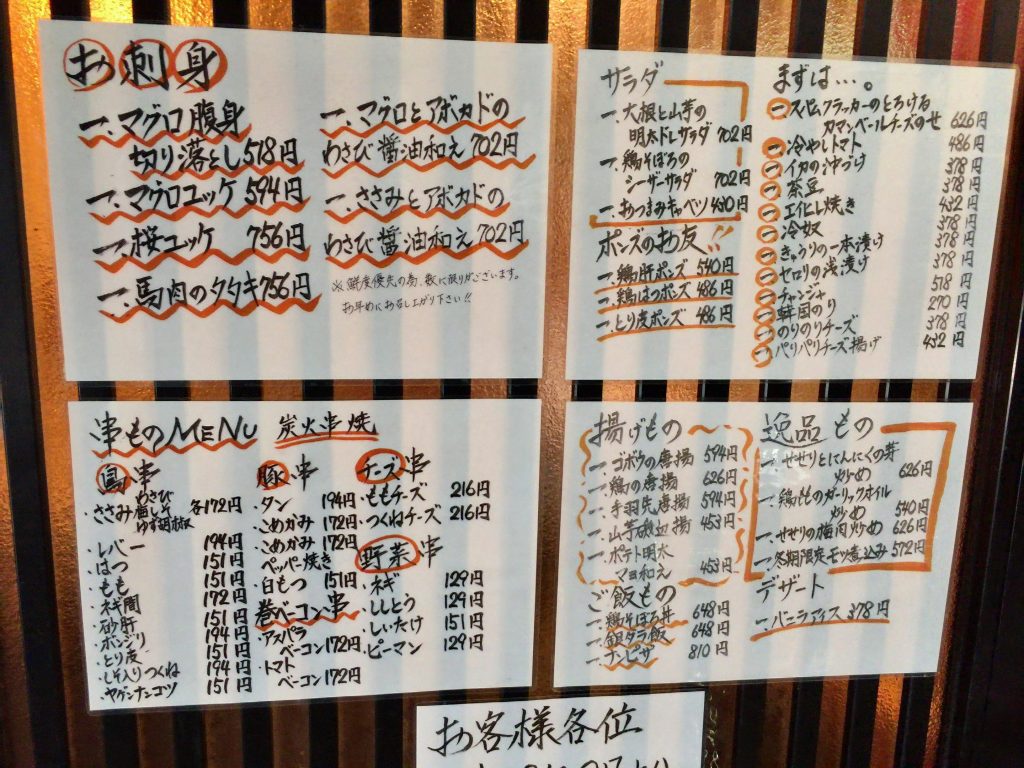 お刺身
一.マグロ腹身
切り落とし518円
一.マグロユッケ594円
一.桜ユッケ 756円
一.馬肉のタタキ756円
一.マグロとアボカドの
わさび醤油和え702円
一.ささみとアボカドの
わさび醤油和え702円
※鮮度優先の為、数に限りがございます。
お早めにお召し上がり下さい!!
サラダ
一.大根と山芋の
明太ドレサラダ 702円
一.鶏そぼろの
シーザーサラダ 702円
一.おつまみキャベツ 430円
ポンズのお友!!
一.鶏肝ポンズ 540円
一.鶏はつポンズ 486円
一.とり皮ポンズ 486円
まずは…。
一スパムクラッカーのとろける
カマンベールチーズのせ 626円
一冷やしトマト 486円
一イカの沖づけ 378円
一茶豆 378円
一エイヒレ焼き 432円
一冷奴 378円
一きゅうりの一本漬け 378円
一セロリの浅漬け 378円
一チャンジャ 518円
一韓国のり 270円
一のりのりチーズ 378円
一パリパリチーズ揚げ 432円
串ものMENU 炭火串焼
鳥串
ささみ わさび 梅しそ ゆず胡椒 各172円
・レバー 194円
・はつ 151円
・もも 151円
・ネギ間 172円
・砂肝 151円
・ボンジリ 194円
・とり皮 151円
・しそ入りつくね 194円
・ヤゲンナンコツ 151円
豚串
・タン 194円
・こめかみ 172円
・こめかみ 172円
ペッパー焼き
・白もつ 151円
巻ベーコン串
・アスパラ
ベーコン172円
・トマト
ベーコン172円
チーズ串
・ももチーズ 216円
・つくねチーズ 216円
野菜串
・ネギ 129円
・ししとう 129円
・しいたけ 151円
・ピーマン 129円
揚げもの
一ゴボウの唐揚 594円
一鶏の唐揚 626円
一手羽先唐揚 594円
一山芋磯辺揚 453円
一ポテト明太
マヨ和え 453円
ご飯もの
一鶏そぼろ丼 648円
一銀ダラ飯 648円
一ナンピザ 810円
逸品もの
一.せせりとにんにくの芽
炒め 626円
一.鶏もものガーリックオイル
炒め 540円
一.せせりの梅肉炒め 626円
一.冬期限定モツ煮込み572円
デザート
一.バニラアイス 378円
お客様各位